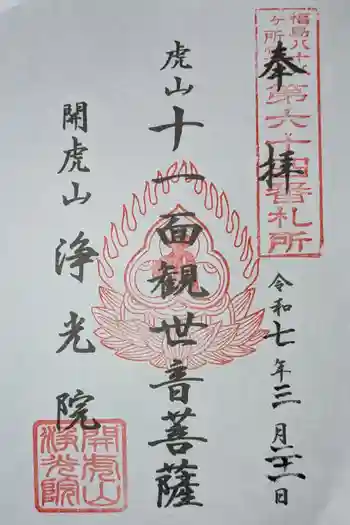 奉拝
福島八十八
ヶ所
第六十四番札所
令和七年三月二十一日
虎山
十一面観世音菩薩
開虎山
浄光院
開虎山
浄光院